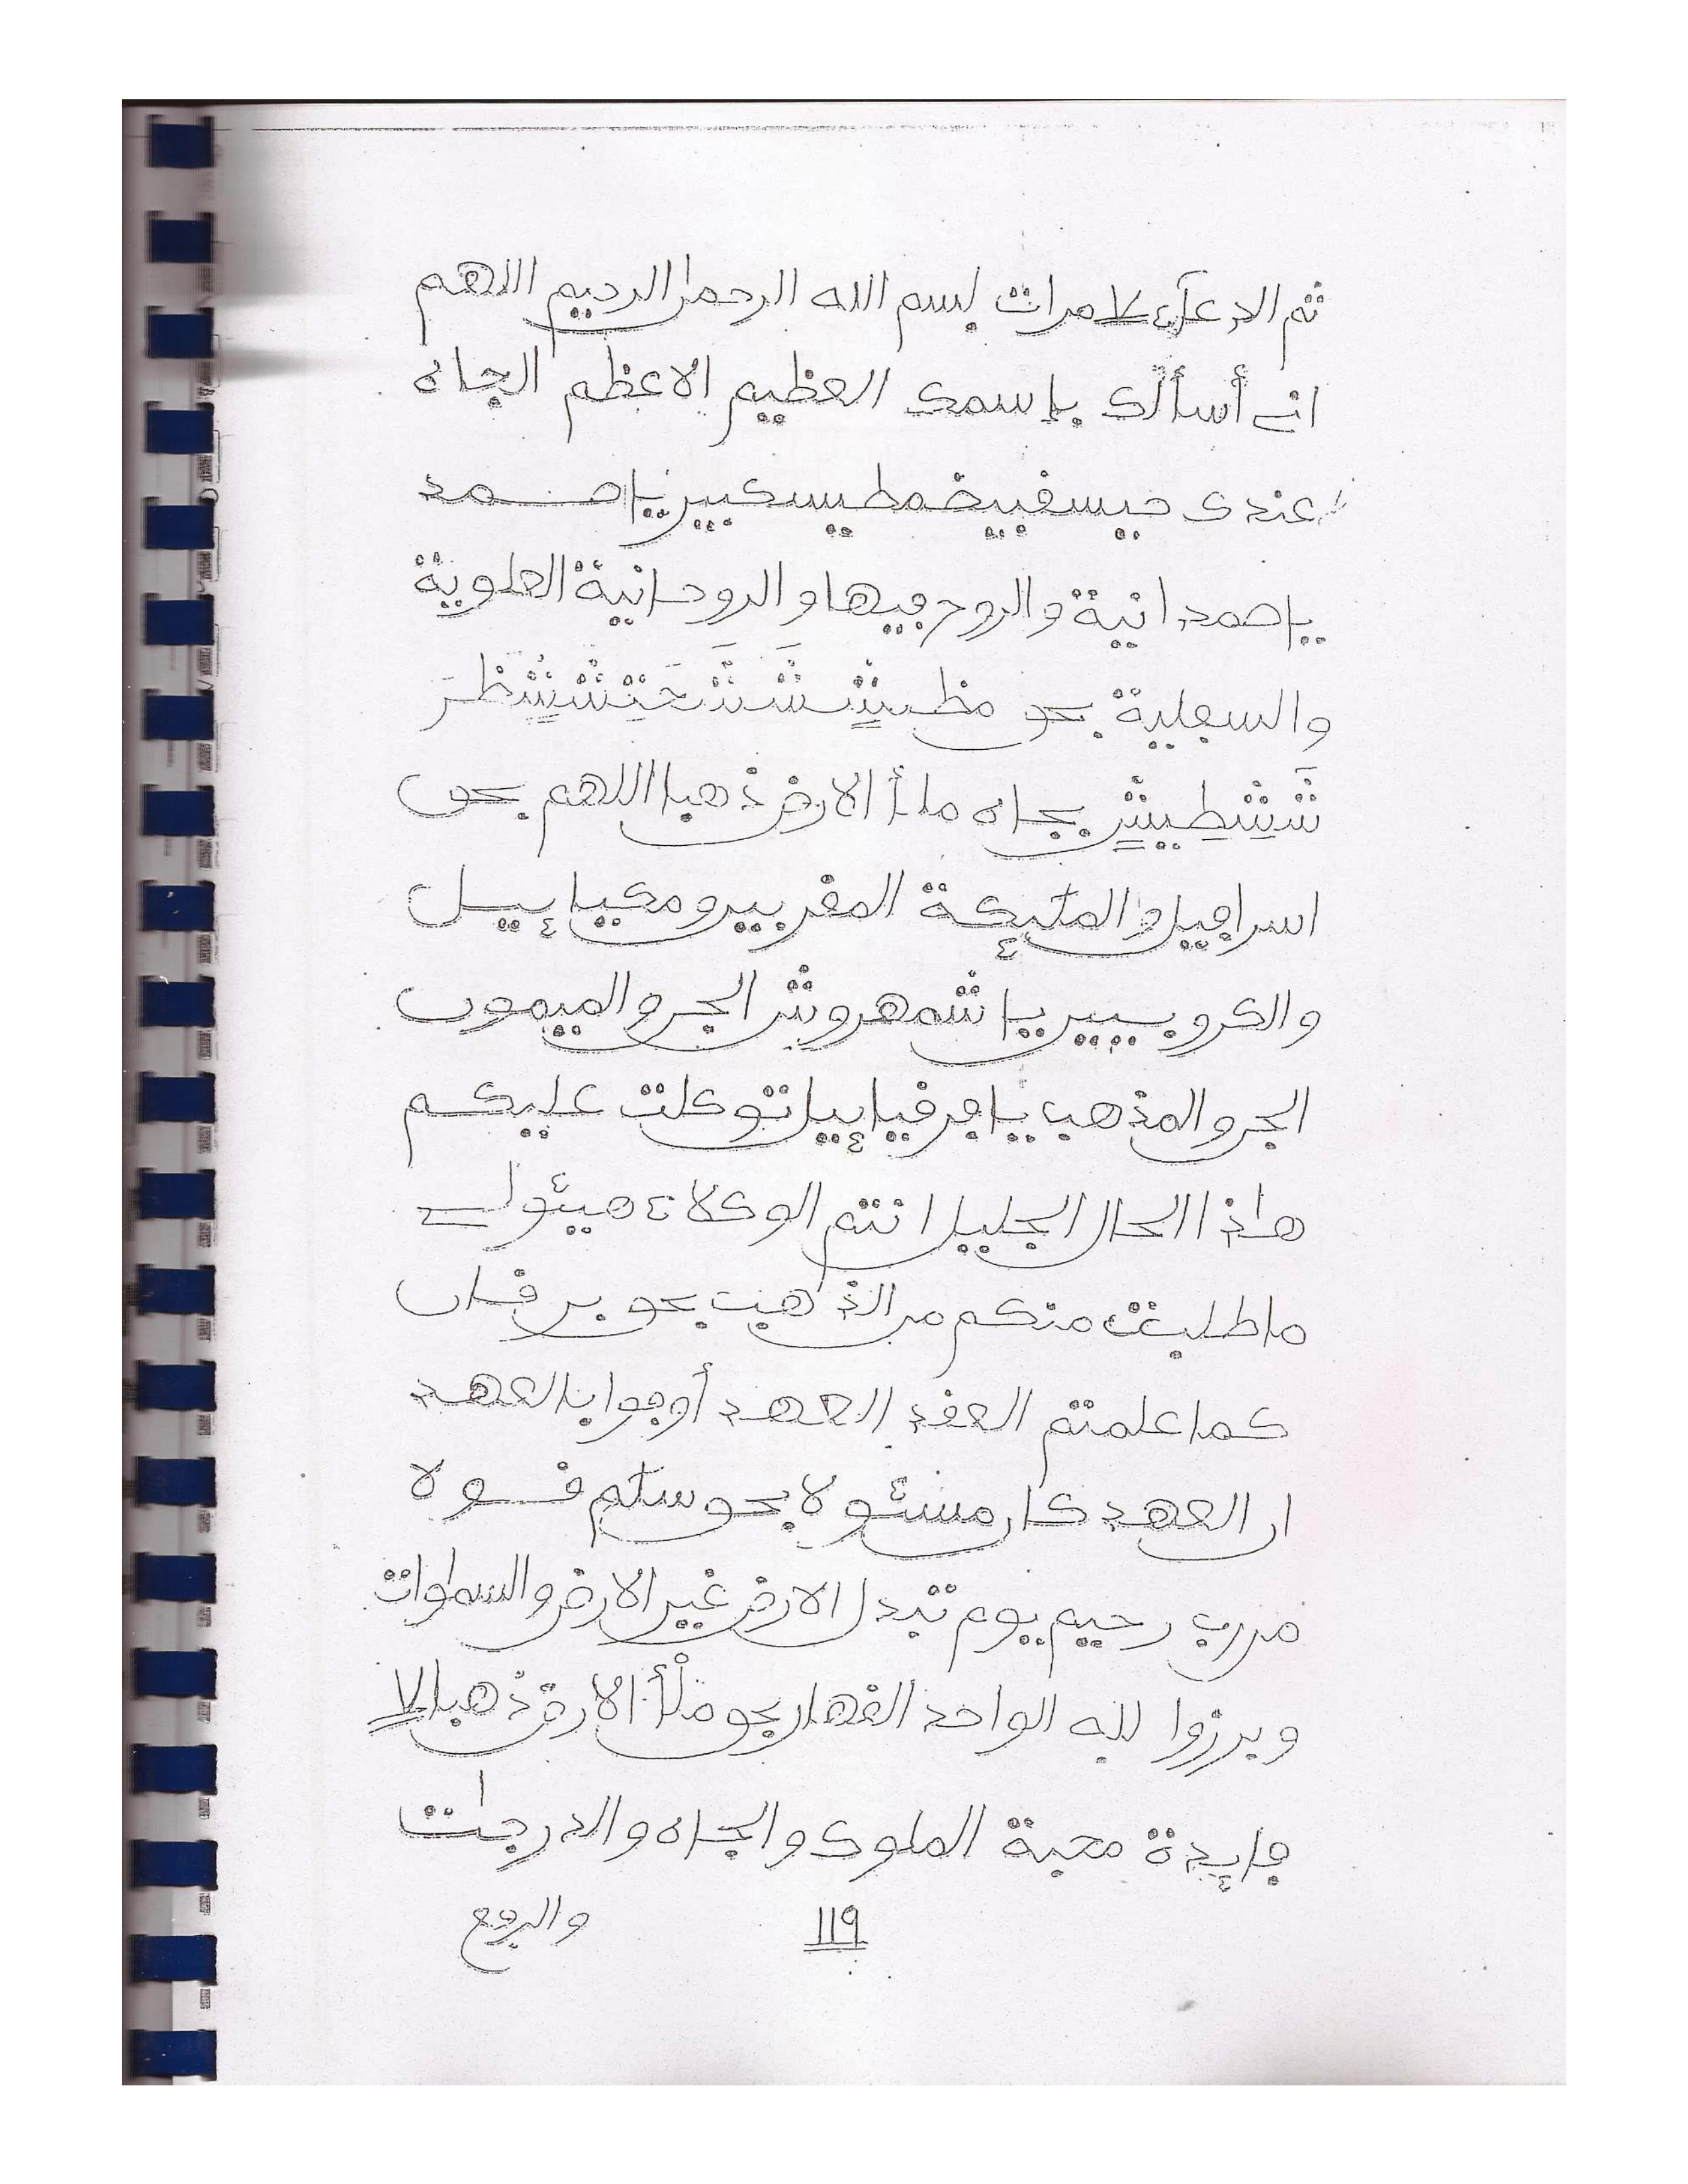 ثم الدعآء ٧ مرات بسم الله الرحمن الرحيم اللهم
اني أسألك باسمك العظيم الاعظم الجاه
عندك
يا صمدانية والروح فيها والروحانية العلوية
والسفلية بحق
بجاه ملأ الارض ذهبا اللهم بحق
اسرافيل والملئكة المقربين ومكيايـيـل
والكروبيين يا شمهروش الجن والميمون
الجن والمذهب يا توكلت عليكم
هاذا الحال الجليل انتم الوكلاء هيئولي
ما طلبت منكم من الذهب بحق
كما علمتم العقد العهد أوفوا بالعهد
ان العهد كان مسئولا بحق سلم قـولا
من رب رحيم يوم تبدل الارض غير الارض والسماوات
وبرزوا لله الواحد القهار بحق ملأ الارض ذهبا ٧
فايدة محبة الملوك والجاه والدرجات
١١٩